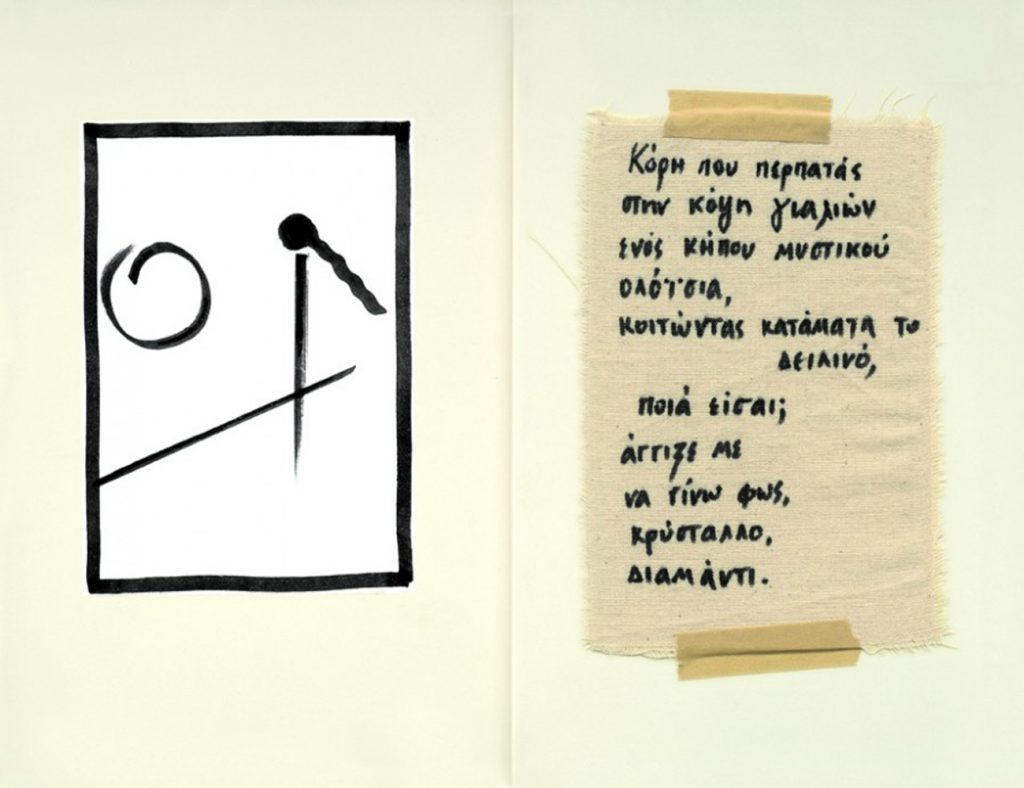 Κόρη που περπατάς
στην κόψη γιαλιών
ενός κήπου μυστικού
ολότσια,
κοιτώντας κατάματα το
δειλινό,
ποιά είσαι;
άγγιξε με
να γίνω φως,
κρύσταλλο,
διαμάντι.